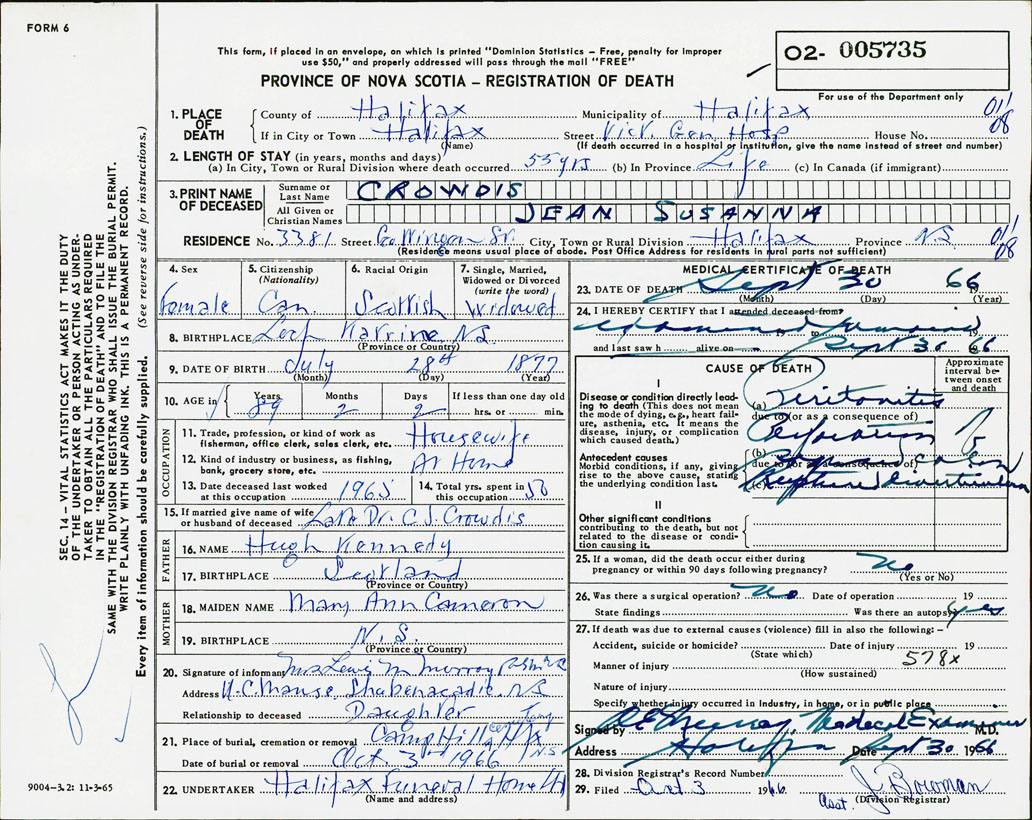 FORM 6
This form, if placed in an envelope, on which is printed "Dominion Statistics – Free, penalty for improper
use $50," and properly addressed will pass through the mail "FREE"
PROVINCE OF NOVA SCOTIA – REGISTRATION OF DEATH
02- 005735
For use of the Department only
1. PLACE OF DEATH
County of Halifax Municipality of Halifax 01/08
If in City or Town Halifax Street Vict. Gen Hosp House No.
(Name) (If death occurred in a hospital or institution, give the name instead of street and number)
2. LENGTH OF STAY (in years, months and days)
(a) In City, Town or Rural Division where death occurred 55 yrs (b) In Province Life (c) In Canada (if immigrant)
3. PRINT NAME OF DECEASED
Surname or Last Name CROWDIS
All Given or Christian Names JEAN SUSANNA
RESIDENCE No. 3381 Street City, Town or Rural Division Halifax Province NS 01/08
(Residence means usual place of abode. Post Office Address for residents in rural parts not sufficient)
4. Sex
Female
5. Citizenship (Nationality)
Can.
6. Racial Origin
Scottish
7. Single, Married, Widowed or Divorced (write the word)
Widowed
8. BIRTHPLACE Loch Katrine NS
(Province or Country)
9. DATE OF BIRTH July 28th 1877
(Month) (Day) (Year)
10. AGE in Years Months Days If less than one day old
89 2 2 hrs. or min.
OCCUPATION
11. Trade, profession, or kind of work as fisherman, office clerk, sales clerk, etc. Housewife
12. Kind of industry or business, as fishing, bank, grocery store, etc. At Home
13. Date deceased last worked at this occupation 1965
14. Total yrs. spent in this occupation 50
15. If married give name of wife or husband of deceased Late Dr. C. J. Crowdis
FATHER
16. NAME Hugh Kennedy
17. BIRTHPLACE Scotland
(Province or Country)
MOTHER
18. MAIDEN NAME Mary Ann Cameron
19. BIRTHPLACE N.S.
(Province or Country)
20. Signature of informant Mrs Lewis M Murray
Address U.C. Manse, Shubenacadie, NS
Relationship to deceased Daughter
21. Place of burial, cremation or removal Camp Hill Cemetery Hfx N.S.
Date of burial or removal Oct. 3rd 1966
22. UNDERTAKER Halifax Funeral Home
(Name and address)
MEDICAL CERTIFICATE OF DEATH
23. DATE OF DEATH Sept 30 1966
(Month) (Day) (Year)
24. I HEREBY CERTIFY that I attended deceased from
19 to 19
and last saw h alive on Sept 30 1966
CAUSE OF DEATH
Approximate interval between onset and death
I
Disease or condition directly leading to death (This does not mean the mode of dying, e.g., heart failure, asthenia, etc. It means the disease, injury, or complication which caused death.)
(a) Peritonitis
due to (or as a consequence of)
Perforation
Antecedent causes
Morbid conditions, if any, giving rise to the above cause, stating the underlying condition last.
(b)
due to (or as a consequence of)
(c) Ruptured diverticulum
II
Other significant conditions contributing to the death, but not related to the disease or condition causing it.
25. If a woman, did the death occur either during pregnancy or within 90 days following pregnancy? No
(Yes or No)
26. Was there a surgical operation? No Date of operation 19
State findings Was there an autopsy? yes
27. If death was due to external causes (violence) fill in also the following: –
Accident, suicide or homicide? Date of injury 19
(State which) 578x
Manner of injury
(How sustained)
Nature of injury
Specify whether injury occurred in Industry, in home, or in public place
Signed by Murray, Medical Examiner M.D.
Address Halifax Date Sept 30 1966
28. Division Registrar's Record Number
29. Filed Oct 3 1966 J Bowman
Asst. (Division Registrar)
SEC. 14 – VITAL STATISTICS ACT MAKES IT THE DUTY
OF THE UNDERTAKER OR PERSON ACTING AS UNDER-
TAKER TO OBTAIN ALL THE PARTICULARS REQUIRED
IN THE "REGISTRATION OF DEATH" AND TO FILE THE
SAME WITH THE DIVISION REGISTRAR WHO SHALL ISSUE THE BURIAL PERMIT.
WRITE PLAINLY WITH UNFADING INK. THIS IS A PERMANENT RECORD.
Every item of information should be carefully supplied. (See reverse side for instructions.)
9004-3.2: 11-3-65